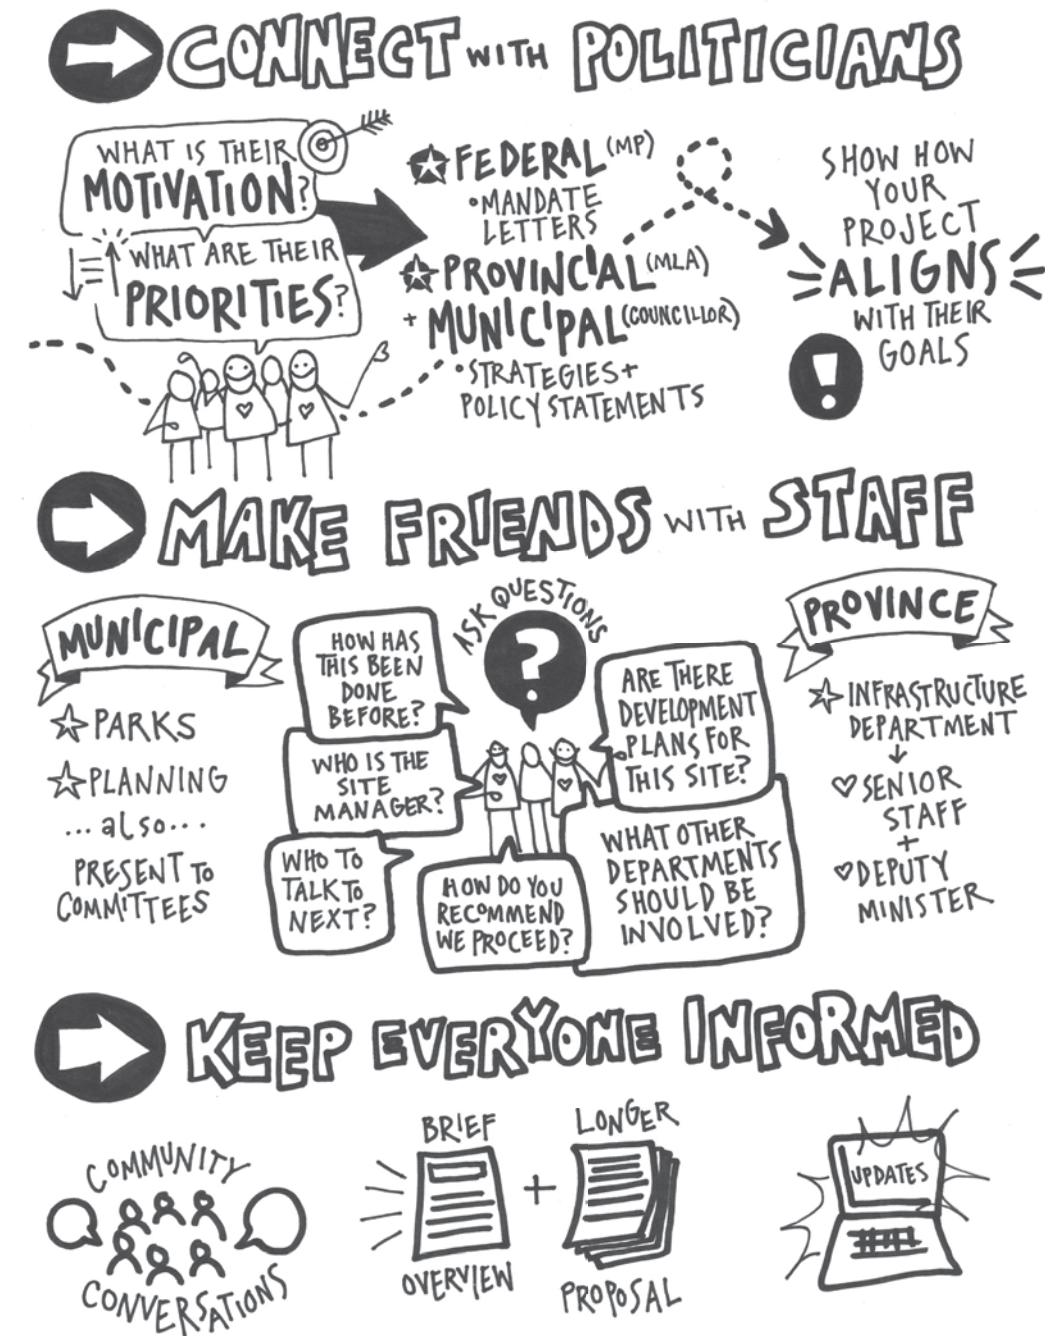 CONNECT WITH POLITICIANS
WHAT IS THEIR
MOTIVATION?
WHAT ARE THEIR
PRIORITIES?
FEDERAL (MP)
•MANDATE
LETTERS
PROVINCIAL (MLA)
+ MUNICIPAL (COUNCILLOR)
•STRATEGIES +
POLICY STATEMENTS
SHOW HOW
YOUR
PROJECT
ALIGNS
WITH THEIR
GOALS
!
MAKE FRIENDS WITH STAFF
MUNICIPAL
PARKS
PLANNING
...also...
PRESENT TO
COMMITTEES
ASK QUESTIONS
?
HOW HAS
THIS BEEN
DONE
BEFORE?
WHO IS THE
SITE
MANAGER?
WHO TO
TALK TO
NEXT?
HOW DO YOU
RECOMMEND
WE PROCEED?
ARE THERE
DEVELOPMENT
PLANS FOR
THIS SITE?
WHAT OTHER
DEPARTMENTS
SHOULD BE
INVOLVED?
PROVINCE
INFRASTRUCTURE
DEPARTMENT
SENIOR
STAFF
+
DEPUTY
MINISTER
KEEP EVERYONE INFORMED
COMMUNITY
CONVERSATIONS
BRIEF
OVERVIEW
+
LONGER
PROPOSAL
UPDATES